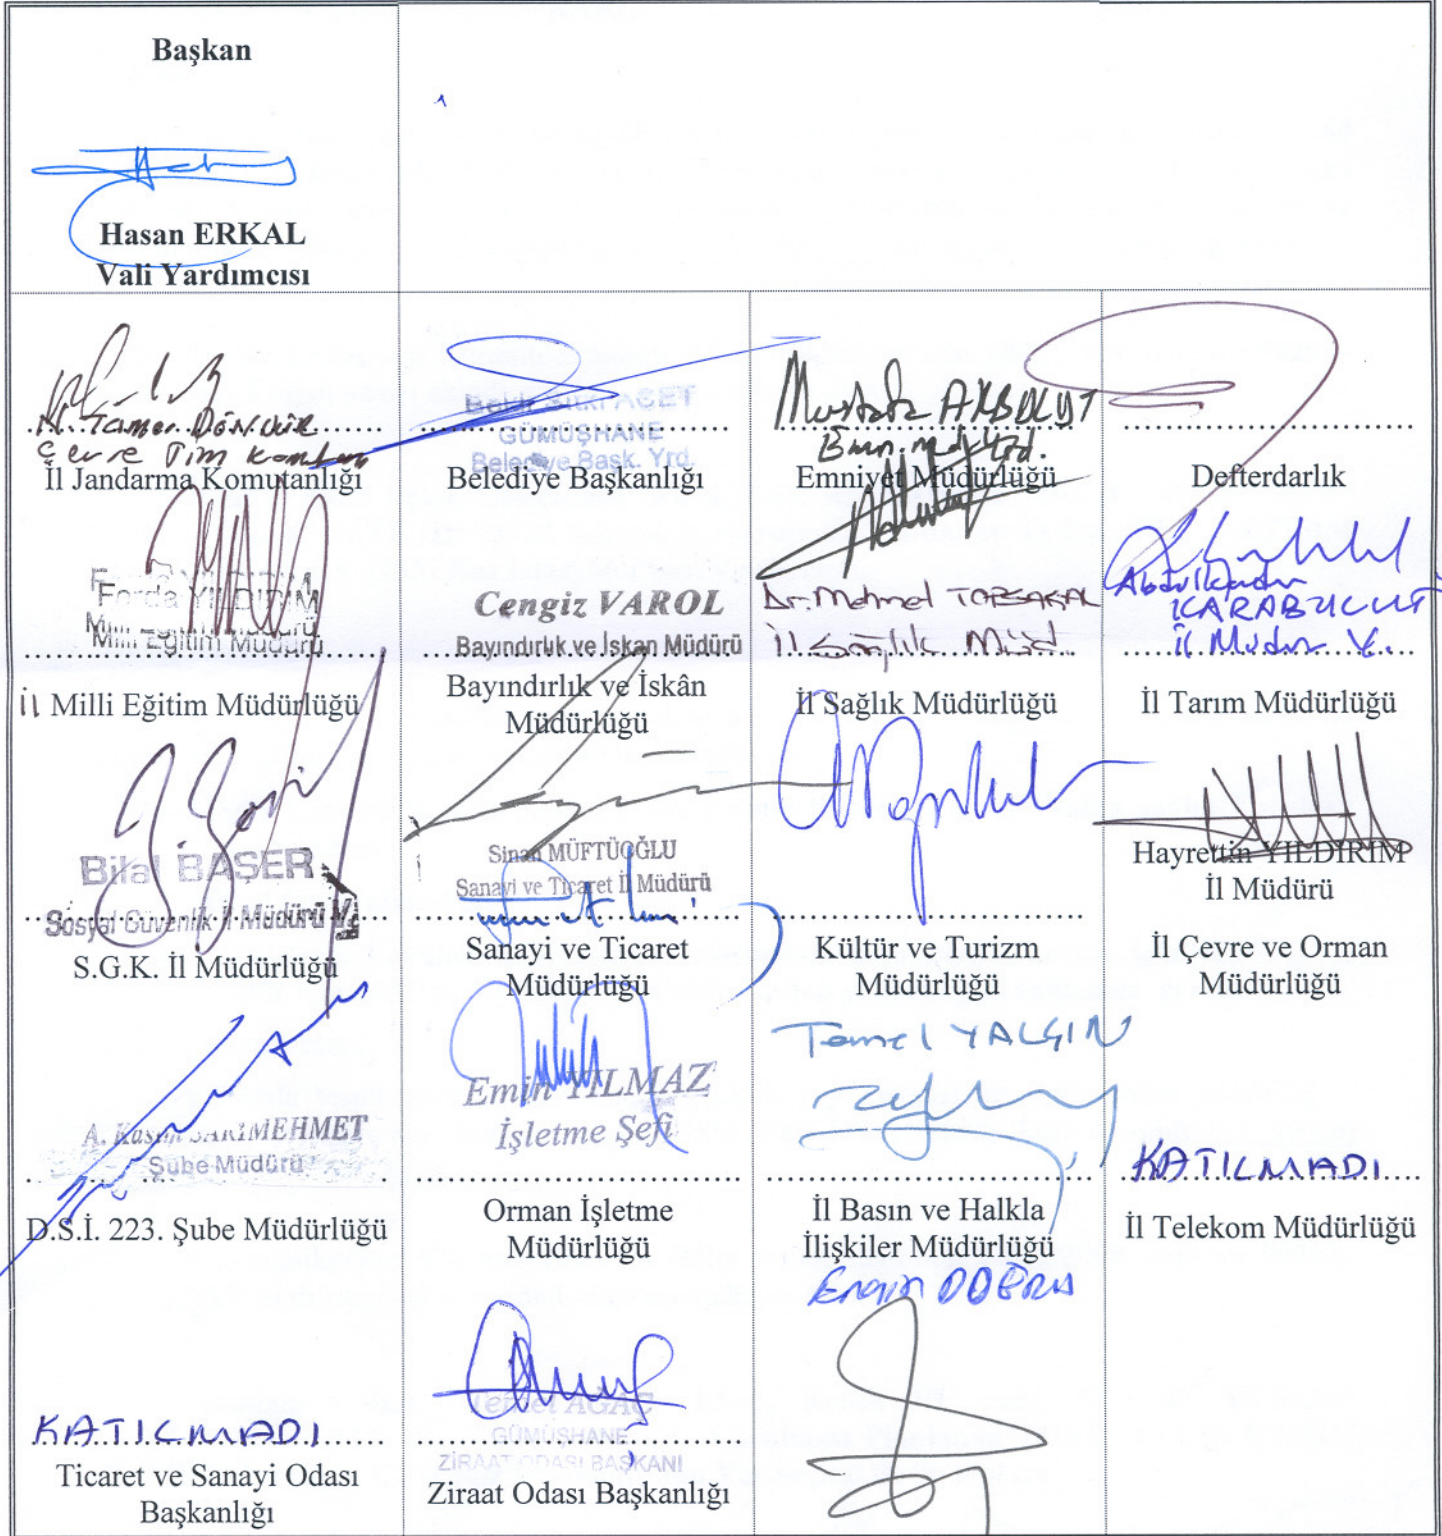 Başkan
Hasan ERKAL
Vali Yardımcısı
Çevre Tim
İl Jandarma Komutanlığı
AGET
GÜMÜŞHANE
Belediye Başk. Yrd.
Belediye Başkanlığı
Mustafa AKBULUT
Emn. Müd. Yrd.
Emniyet Müdürlüğü
Defterdarlık
Ferda YILDIRIM
Milli Eğitim Müdürü
İl Milli Eğitim Müdürlüğü
Cengiz VAROL
Bayındırlık ve İskan Müdürü
Bayındırlık ve İskân
Müdürlüğü
Dr. Mehmet
İl Sağlık Müd.
İl Sağlık Müdürlüğü
Abdulkadir
KARABULUT
İl Müdür V.
İl Tarım Müdürlüğü
Bilal BAŞER
Sosyal Güvenlik İl Müdürü V.
S.G.K. İl Müdürlüğü
Sinan MÜFTÜOĞLU
Sanayi ve Ticaret İl Müdürü
Sanayi ve Ticaret
Müdürlüğü
Kültür ve Turizm
Müdürlüğü
Hayrettin YILDIRIM
İl Müdürü
İl Çevre ve Orman
Müdürlüğü
A. Kasım SARIMEHMET
Şube Müdürü
D.S.İ. 223. Şube Müdürlüğü
Emin YILMAZ
İşletme Şefi
Orman İşletme
Müdürlüğü
Temel YALÇIN
İl Basın ve Halkla
İlişkiler Müdürlüğü
KATILMADI
İl Telekom Müdürlüğü
KATILMADI
Ticaret ve Sanayi Odası
Başkanlığı
Temel AĞAÇ
GÜMÜŞHANE
ZİRAAT ODASI BAŞKANI
Ziraat Odası Başkanlığı
Engin DOĞRU